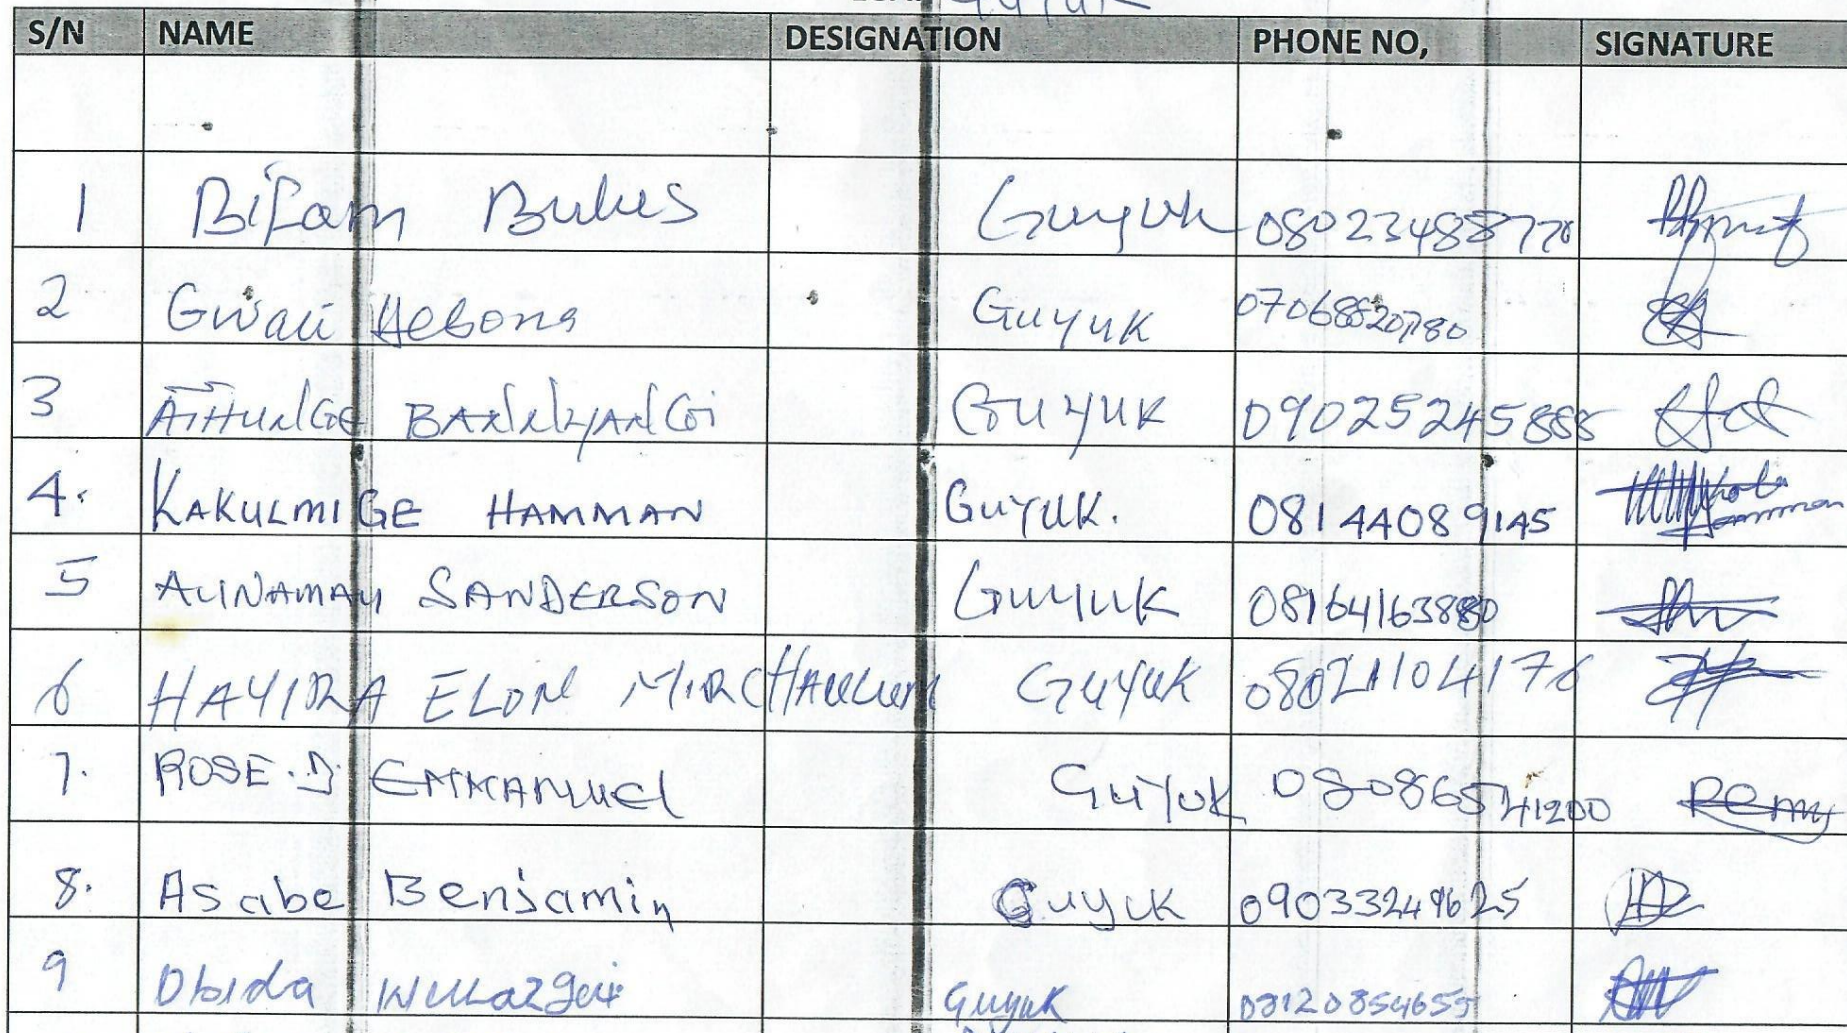 Guyuk
S/N NAME DESIGNATION PHONE NO, SIGNATURE
1 Bifam Bulus Guyuk 08023488770
2 Gwali Hebona Guyuk 07068520780
3 ATHUNGE BANNYANGI GUYUK 09025245888
4. KAKULMIGE HAMMAN GUYUK. 08144089145
5 ALINAMAY SANDERSON GUYUK 08164163880
6 HAYIRA ELON MIRCHAULUM GUYUK 08021104176
7. ROSE.J EMMANUEL GUYUK 08086541200
8. Asabe Benjamin Guyuk 09033249625
9 Obida Guyuk 08120854655